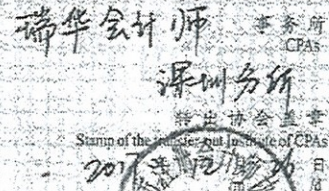 瑞华会计师 事务所
CPAs
深圳分所
转出协会盖章
Stamp of the transfer-out Institute of CPAs
日